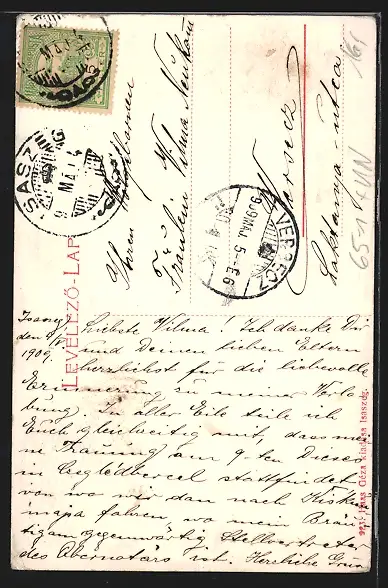 LEVELEZŐ-LAP
Ihren Hochgeboren
Fräulein Vilma Neuhaus
Versecz
utca
VERSECZ
Isaszeg
den 9/V
1909.
Liebste Vilma! Ich danke Dir
und Deinen lieben Eltern
herzlichst für die liebevolle
Erinnerung zu meiner Verlo
bung. In aller Eile teile ich
Euch gleichzeitig mit, dass mei
ne Trauung am 9ten Dieses
in Czeglédbercel stattfindet
von wo wir dan nach Kis
fahren, wo mein Bräu
tigam gegenwärtig Stellvertreter
des Obernotärs ist. Herzliche
Géza kiadása Isaszeg.